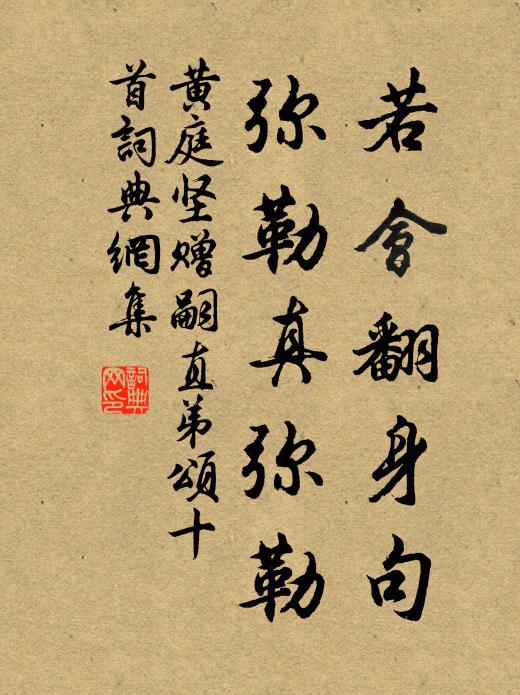 若會翻身句
弥勒真弥勒
黄庭坚赠嗣直弟頌十
首詞典網集
詞典
网印